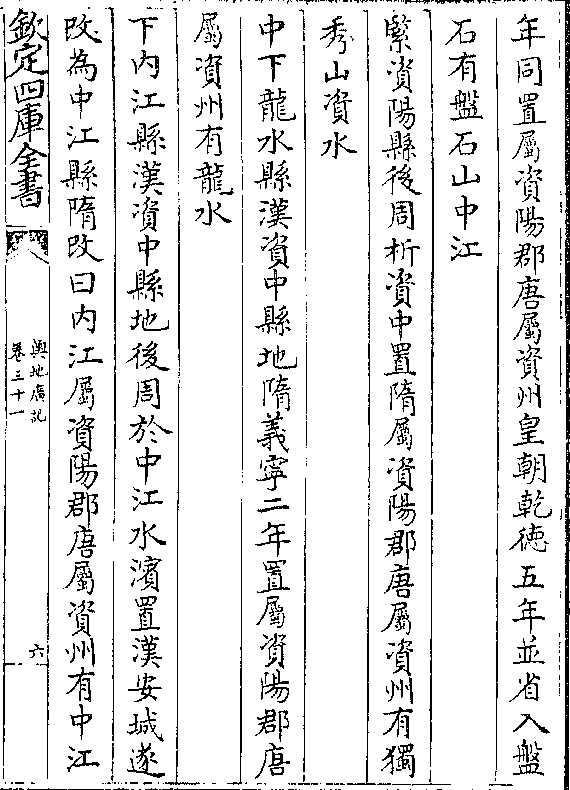 年同置屬資陽郡唐屬資州皇朝乾徳五年並省入盤
石有盤石山中江
緊資陽縣後周析資中置隋屬資陽郡唐屬資州有獨
秀山資水
中下龍水縣漢資中縣地隋義寧二年置屬資陽郡唐
屬資州有龍水
下内江縣漢資中縣地後周於中江水濱置漢安城遂
改為中江縣隋改曰内江屬資陽郡唐屬資州有中江
欽定四庫全書
輿地廣記
卷三十一
六